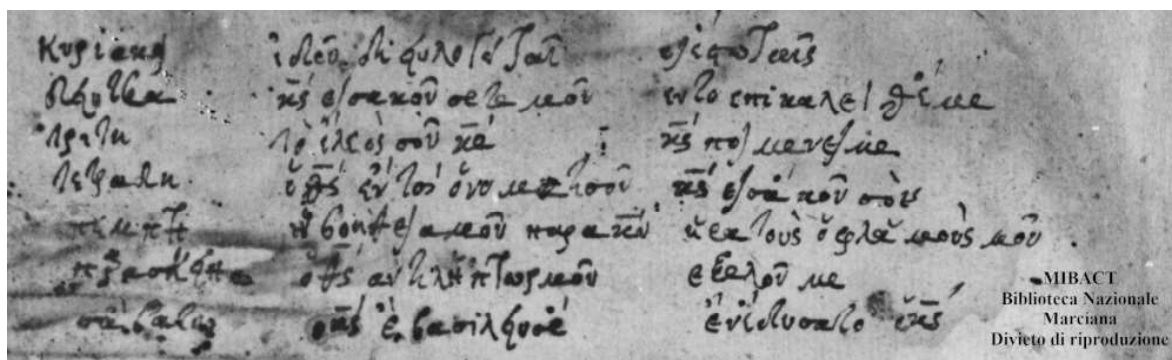 κυριακη ιδου δη ευλογειται
δευτερα κ̅ς̅ εισακουσετε μου εντο επικαλεῖσθέ με
τριτη το ελεὸς σοῦ κ̅ε̅ κ̅ς̅ ποιμενει με
τετραδη ὁ θ̅ς̅ ἐν τοι ονοματι σοῦ εισάκουσον
πεμπτη ἡ βοηθεια μοῦ παρα κ̅υ̅ ἦρα τοὺς ὀφλαμοὺς μοῦ
παρασκευη ὁ θ̅ς̅ αντιληπτωρ μοῦ εξελοῦ με
σαβατω ο κ̅ς̅ ἐβασιλευσε ἐνεδυσατο ὁ κ̅ς̅
MIBACT
Biblioteca Nazionale
Marciana
Divieto di riproduzione